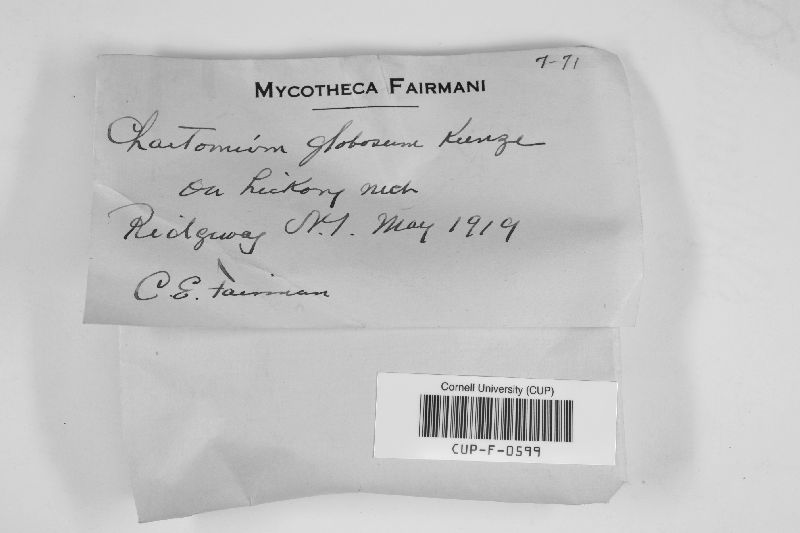 7-71
MYCOTHECA FAIRMANI
Chaetomium globosum Kunze
on hickory nuts
Ridgway N.Y. May 1919
C.E. Fairman
Cornell University (CUP)
CUP-F-0599